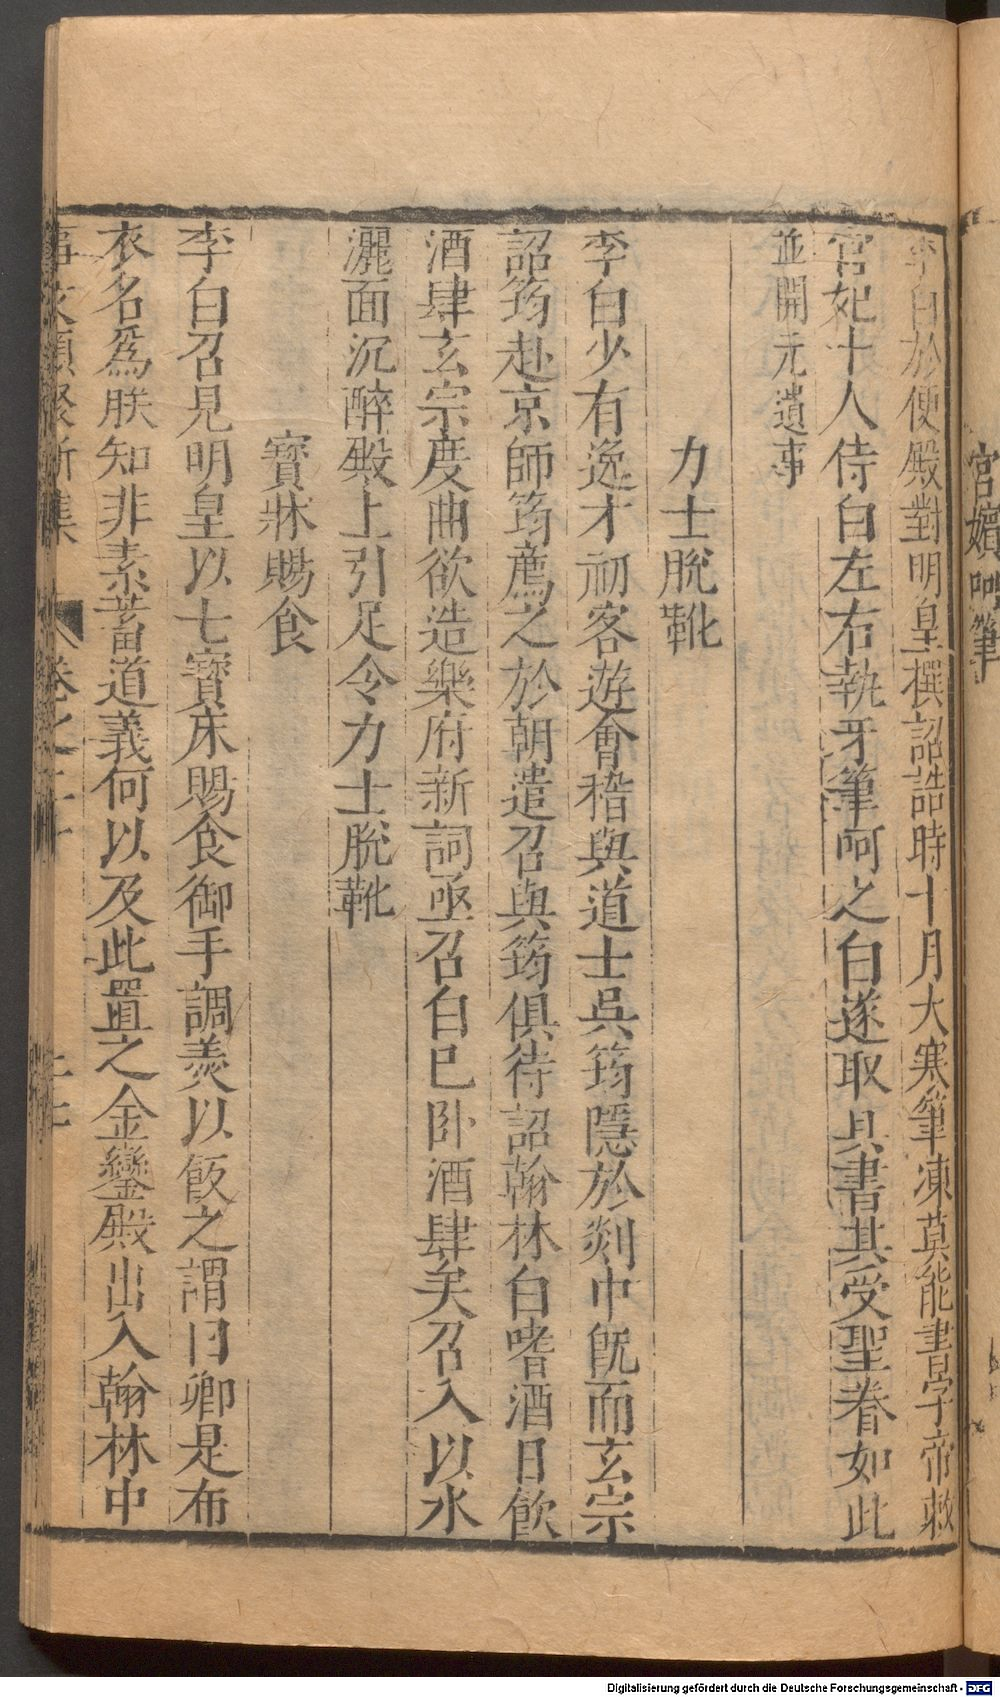 宮嬪呵筆
李白於便殿對明皇撰詔誥時十月大寒筆凍莫能書字帝敕
宮妃十人侍白左右執牙筆呵之白遂取具書其受聖眷如此
並開元遺事
力士脫靴
李白少有逸才初客遊會稽與道士吳筠隱於剡中旣而玄宗
詔筠赴京師筠薦之於朝遣召與筠俱待詔翰林白嗜酒日飲
酒肆玄宗度曲欲造樂府新詞亟召白已卧酒肆矣召入以水
灑面沉醉殿上引足令力士脫靴
寳牀賜食
李白召見明皇以七寳床賜食御手調羮以飯之謂曰卿是布
衣名爲朕知非素蓄道義何以及此置之金鑾殿出入翰林中
事文類聚新集 卷之二十
Digitalisierung gefördert durch die Deutsche Forschungsgemeinschaft - DFG